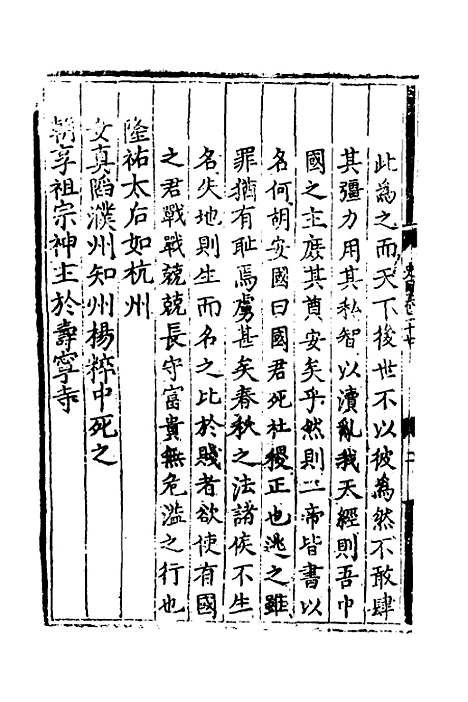 此為之而天下後世不以彼為然不敢肆
其彊力用其私智以瀆亂我天經則吾中
國之主庶其奠安矣乎然則二帝皆書以
名何胡安國曰國君死社稷正也逃之雖
罪猶有耻焉虜甚矣春秋之法諸侯不生
名失地則生而名之比於賤者欲使有國
之君戰戰兢兢長守富貴無危溢之行也
隆祐太后如杭州
女真陷濮州知州楊粹中死之
朝享祖宗神主於壽寧寺